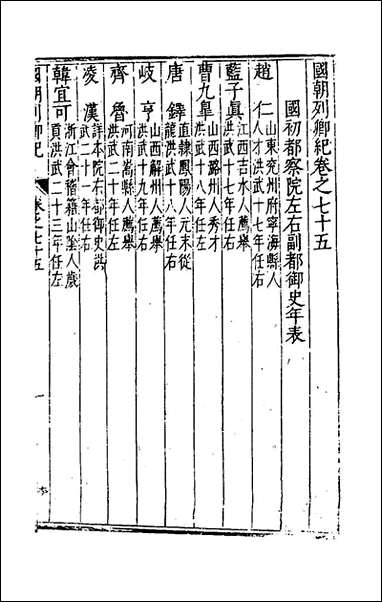 國朝列卿紀卷之七十五
國初都察院左右副都御史年表
趙仁
山東兗州府寧海縣人
人才洪武十七年任右
藍子眞
江西吉水人薦舉
洪武十七年任右
曹九皐
山西潞州人秀才
洪武十八年任左
唐鐸
直隸鳳陽人元末從
龍洪武十八年任右
岐亨
山西解州人薦舉
洪武十九年任右
齊魯
河南嵩縣人薦舉
洪武二十年任左
凌漢
詳本院右都御史洪
武二十一年任右
韓宜可
浙江會稽籍山陰人歲
貢洪武二十三年任左
國朝列卿紀
卷之七十五
一